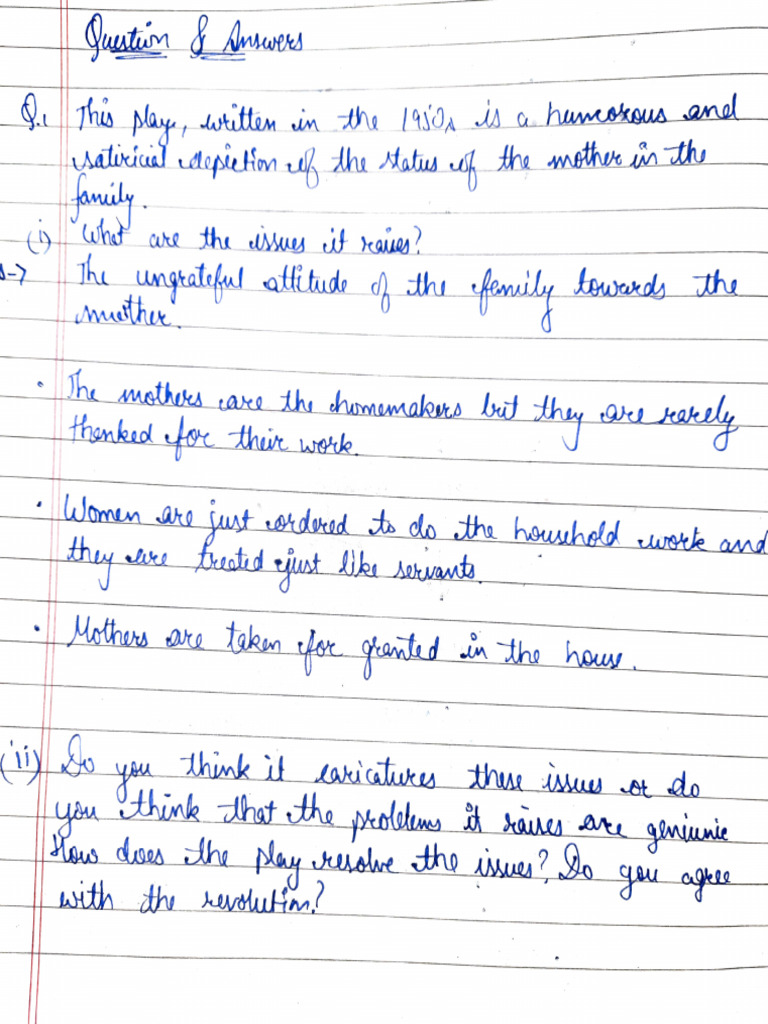 Question & Answers
Q.1 This play, written in the 1950s is a humorous and
satiricial depiction of the status of the mother in the
family.
(i) What are the issues it raises?
The ungrateful attitude of the family towards the
mother.
• The mothers are the homemakers but they are rarely
thanked for their work.
• Women are just ordered to do the household work and
they are treated just like servants.
• Mothers are taken for granted in the house.
(ii) Do you think it caricatures these issues or do
you think that the problems it raises are geniunie
How does the play resolve the issues? Do you agree
with the revolution?